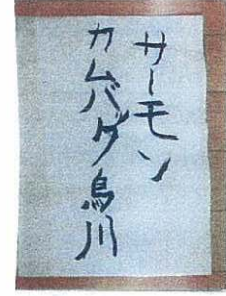 サーモン
カムバック烏川